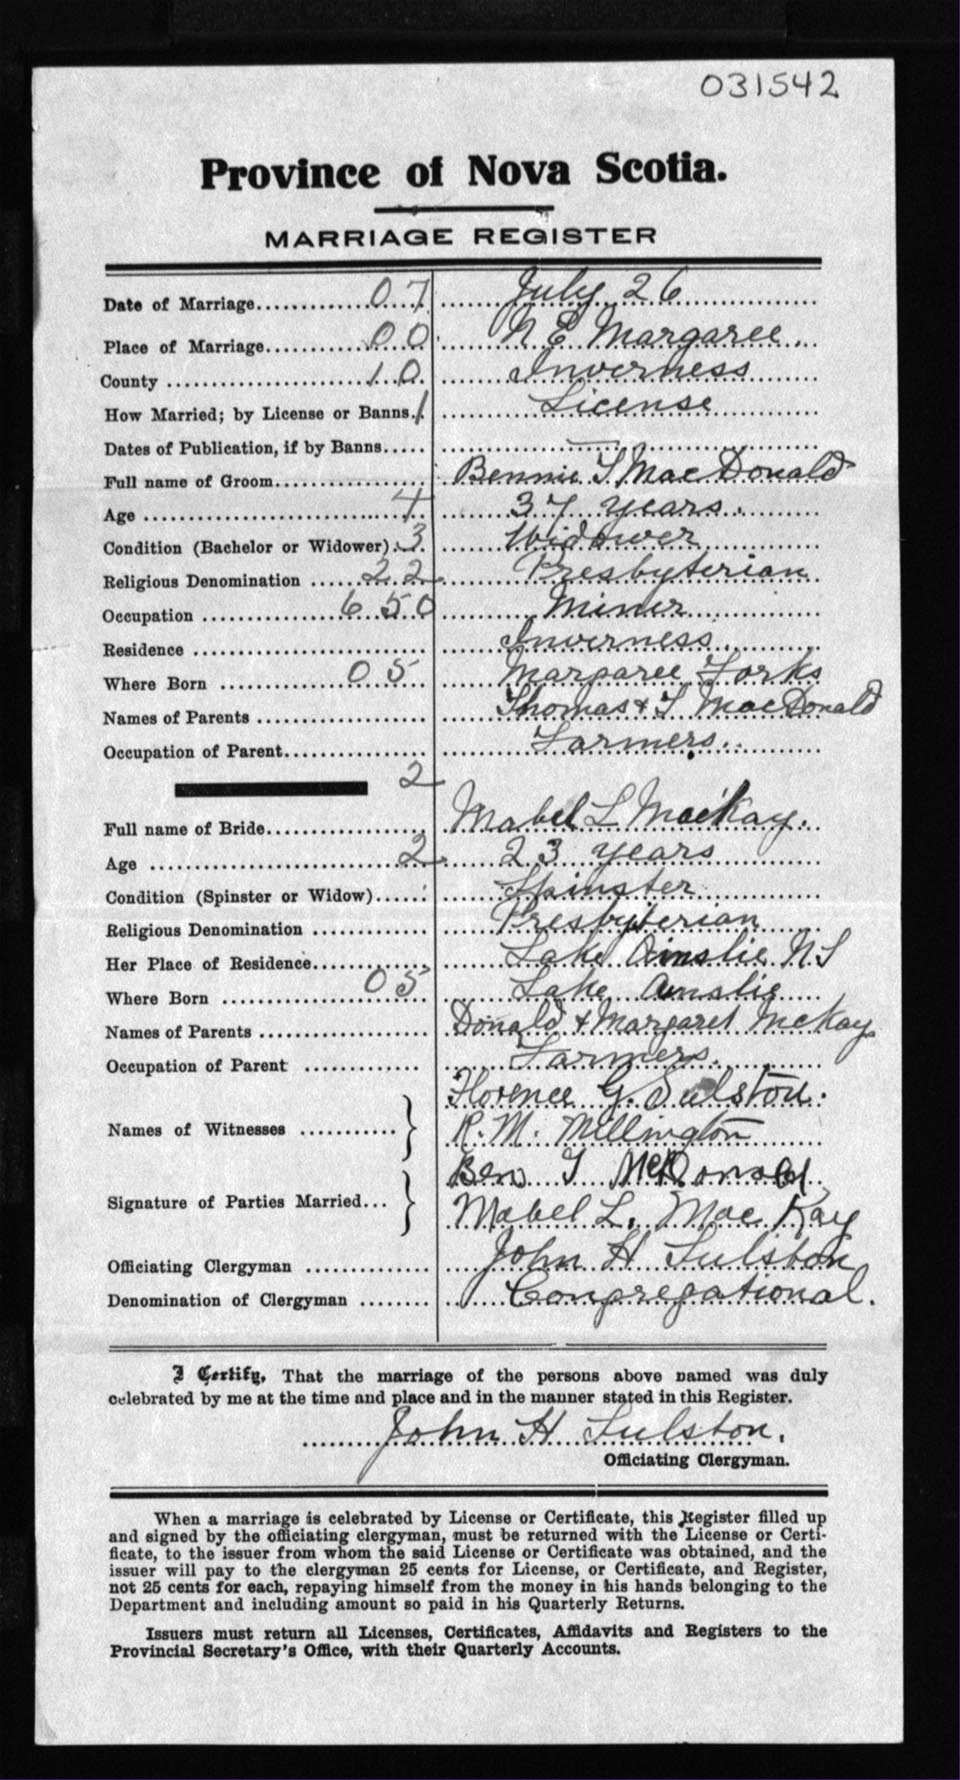 031542
Province of Nova Scotia.
MARRIAGE REGISTER
Date of Marriage 07 July 26
Place of Marriage 00 N E Margaree
County 10 Inverness
How Married; by License or Banns 1 License
Dates of Publication, if by Banns —
Full name of Groom Bennie T MacDonald
Age 4 37 years.
Condition (Bachelor or Widower) 3 Widower
Religious Denomination 22 Presbyterian
Occupation 650 Miner
Residence Inverness
Where Born 05 Margaree Forks
Names of Parents Thomas & T MacDonald
Occupation of Parent Farmers.
2
Full name of Bride Mabel L MacKay.
Age 2 23 years
Condition (Spinster or Widow) Spinster
Religious Denomination Presbyterian
Her Place of Residence Lake Ainslie NS
Where Born 05 Lake Ainslie
Names of Parents Donald & Margaret McKay
Occupation of Parent Farmers.
Florence G. Sulston.
Names of Witnesses R. M. Millington
Ben T McDonald
Signature of Parties Married Mabel L. MacKay
Officiating Clergyman John H Sulston
Denomination of Clergyman Congregational.
I Certify, That the marriage of the persons above named was duly
celebrated by me at the time and place and in the manner stated in this Register.
John H Sulston.
Officiating Clergyman.
When a marriage is celebrated by License or Certificate, this Register filled up
and signed by the officiating clergyman, must be returned with the License or Certi-
ficate, to the issuer from whom the said License or Certificate was obtained, and the
issuer will pay to the clergyman 25 cents for License, or Certificate, and Register,
not 25 cents for each, repaying himself from the money in his hands belonging to the
Department and including amount so paid in his Quarterly Returns.
Issuers must return all Licenses, Certificates, Affidavits and Registers to the
Provincial Secretary's Office, with their Quarterly Accounts.